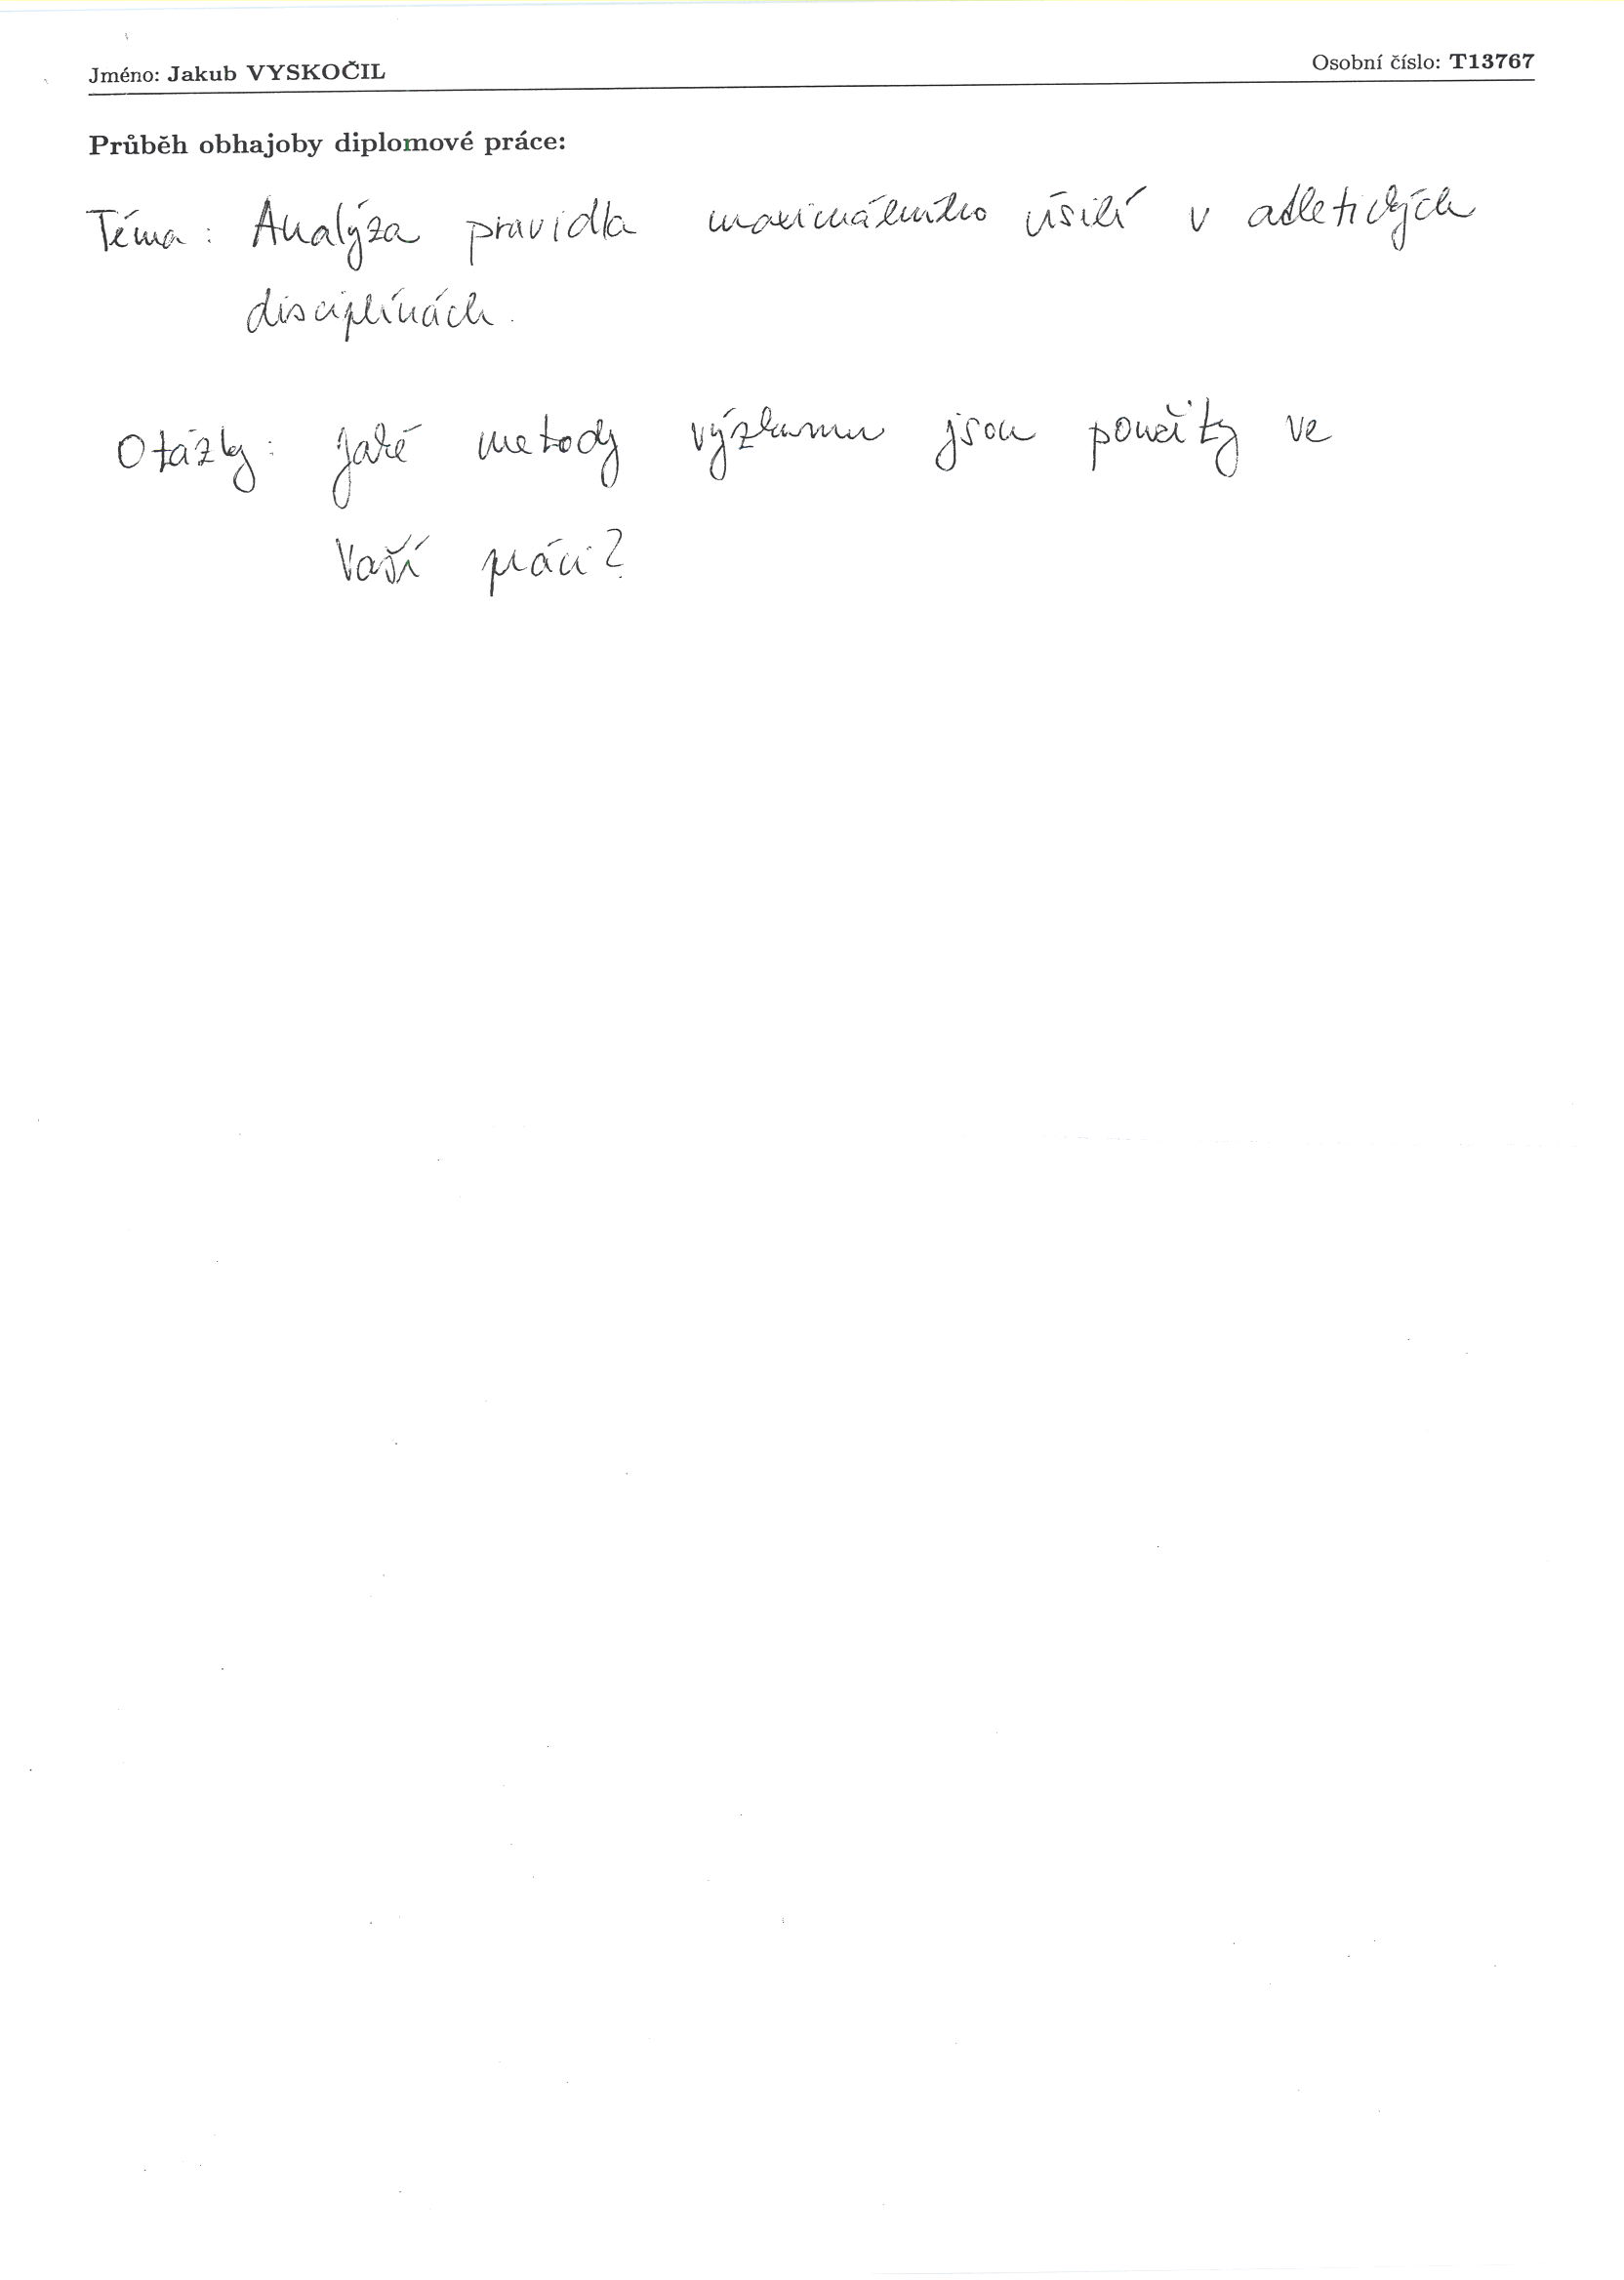 Jméno: Jakub VYSKOČIL Osobní číslo: T13767
Průběh obhajoby diplomové práce:
Téma: Analýza pravidla maximálního úsilí v atletických
disciplínách.
Otázky: Jaké metody výzkumu jsou použity ve
Vaší práci?